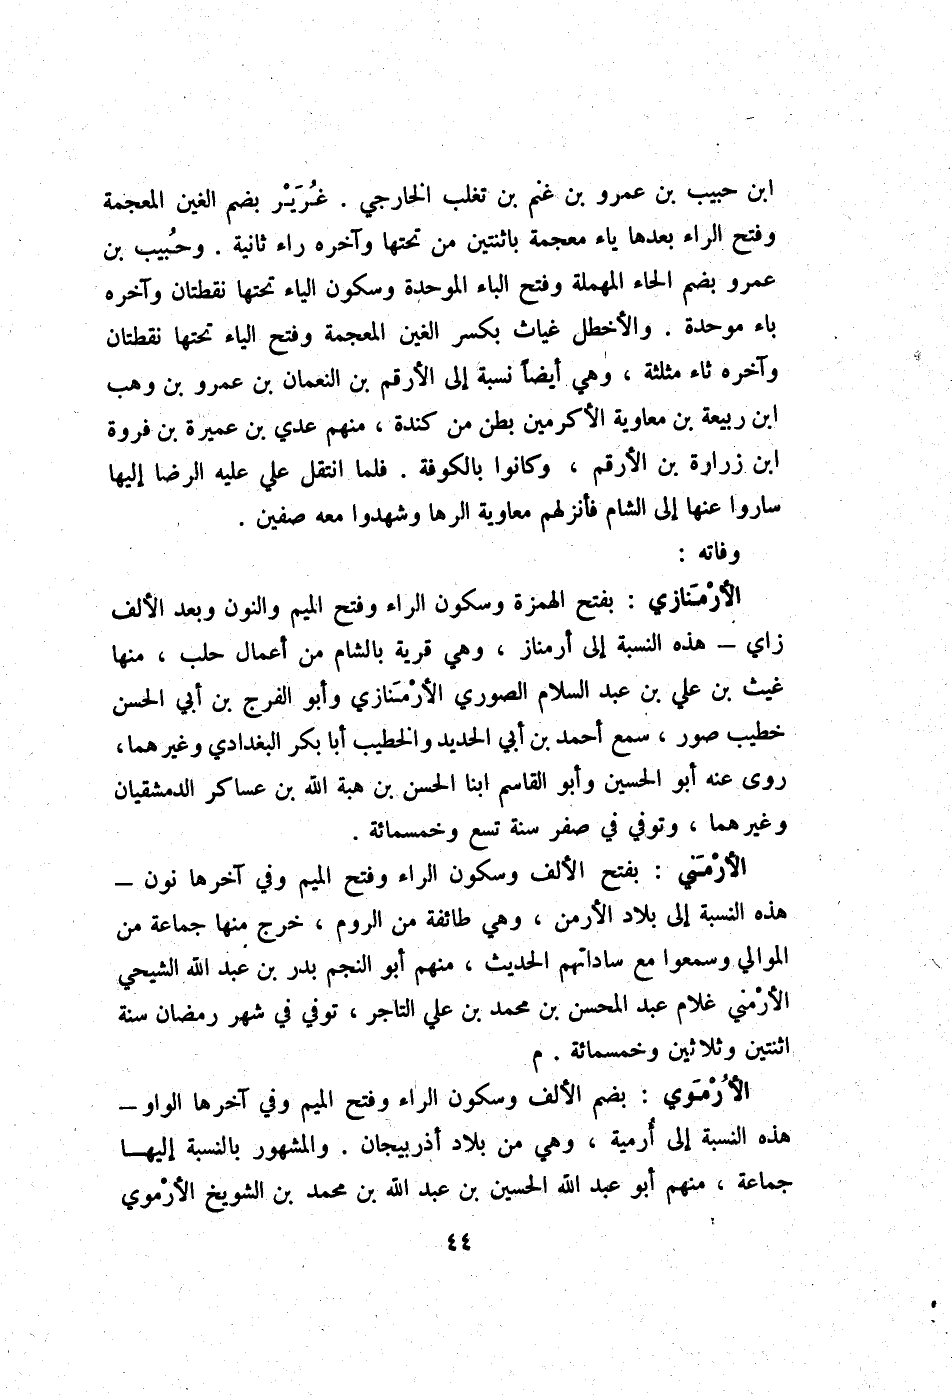 ابن حبيب بن عمرو بن غنم بن تغلب الخارجي . غُرَيْر بضم الغين المعجمة
وفتح الراء بعدها ياء معجمة باثنتين من تحتها وآخره راء ثانية . وحُبيب بن
عمرو بضم الحاء المهملة وفتح الباء الموحدة وسكون الياء تحتها نقطتان وآخره
باء موحدة . والأخطل غياث بكسر الغين المعجمة وفتح الياء تحتها نقطتان
وآخره ثاء مثلثة ، وهي أيضاً نسبة إلى الأرقم بن النعمان بن عمرو بن وهب
ابن ربيعة بن معاوية الأكرمين بطن من كندة ، منهم عدي بن عميرة بن فروة
ابن زرارة بن الأرقم ، وكانوا بالكوفة . فلما انتقل علي عليه الرضا إليها
ساروا عنها إلى الشام فأنزلهم معاوية الرها وشهدوا معه صفين .
وفاته :
الأرْمَنازي : بفتح الهمزة وسكون الراء وفتح الميم والنون وبعد الألف
زاي – هذه النسبة إلى أرمناز ، وهي قرية بالشام من أعمال حلب ، منها
غيث بن علي بن عبد السلام الصوري الأرْمَنازي وأبو الفرج بن أبي الحسن
خطيب صور ، سمع أحمد بن أبي الحديد والخطيب أبا بكر البغدادي وغيرهما ،
روى عنه أبو الحسين وأبو القاسم ابنا الحسن بن هبة الله بن عساكر الدمشقيان
وغيرهما ، وتوفي في صفر سنة تسع وخمسمائة .
الأرْمَني : بفتح الألف وسكون الراء وفتح الميم وفي آخرها نون –
هذه النسبة إلى بلاد الأرمن ، وهي طائفة من الروم ، خرج منها جماعة من
الموالي وسمعوا مع ساداتهم الحديث ، منهم أبو النجم بدر بن عبد الله الشيحي
الأرْمني غلام عبد المحسن بن محمد بن علي التاجر ، توفي في شهر رمضان سنة
اثنتين وثلاثين وخمسمائة . م
الأُرْمَوي : بضم الألف وسكون الراء وفتح الميم وفي آخرها الواو –
هذه النسبة إلى أُرمية ، وهي من بلاد أذربيجان . والمشهور بالنسبة إليهـا
جماعة ، منهم أبو عبد الله الحسين بن عبد الله بن محمد بن الشويخ الأرْموي
٤٤